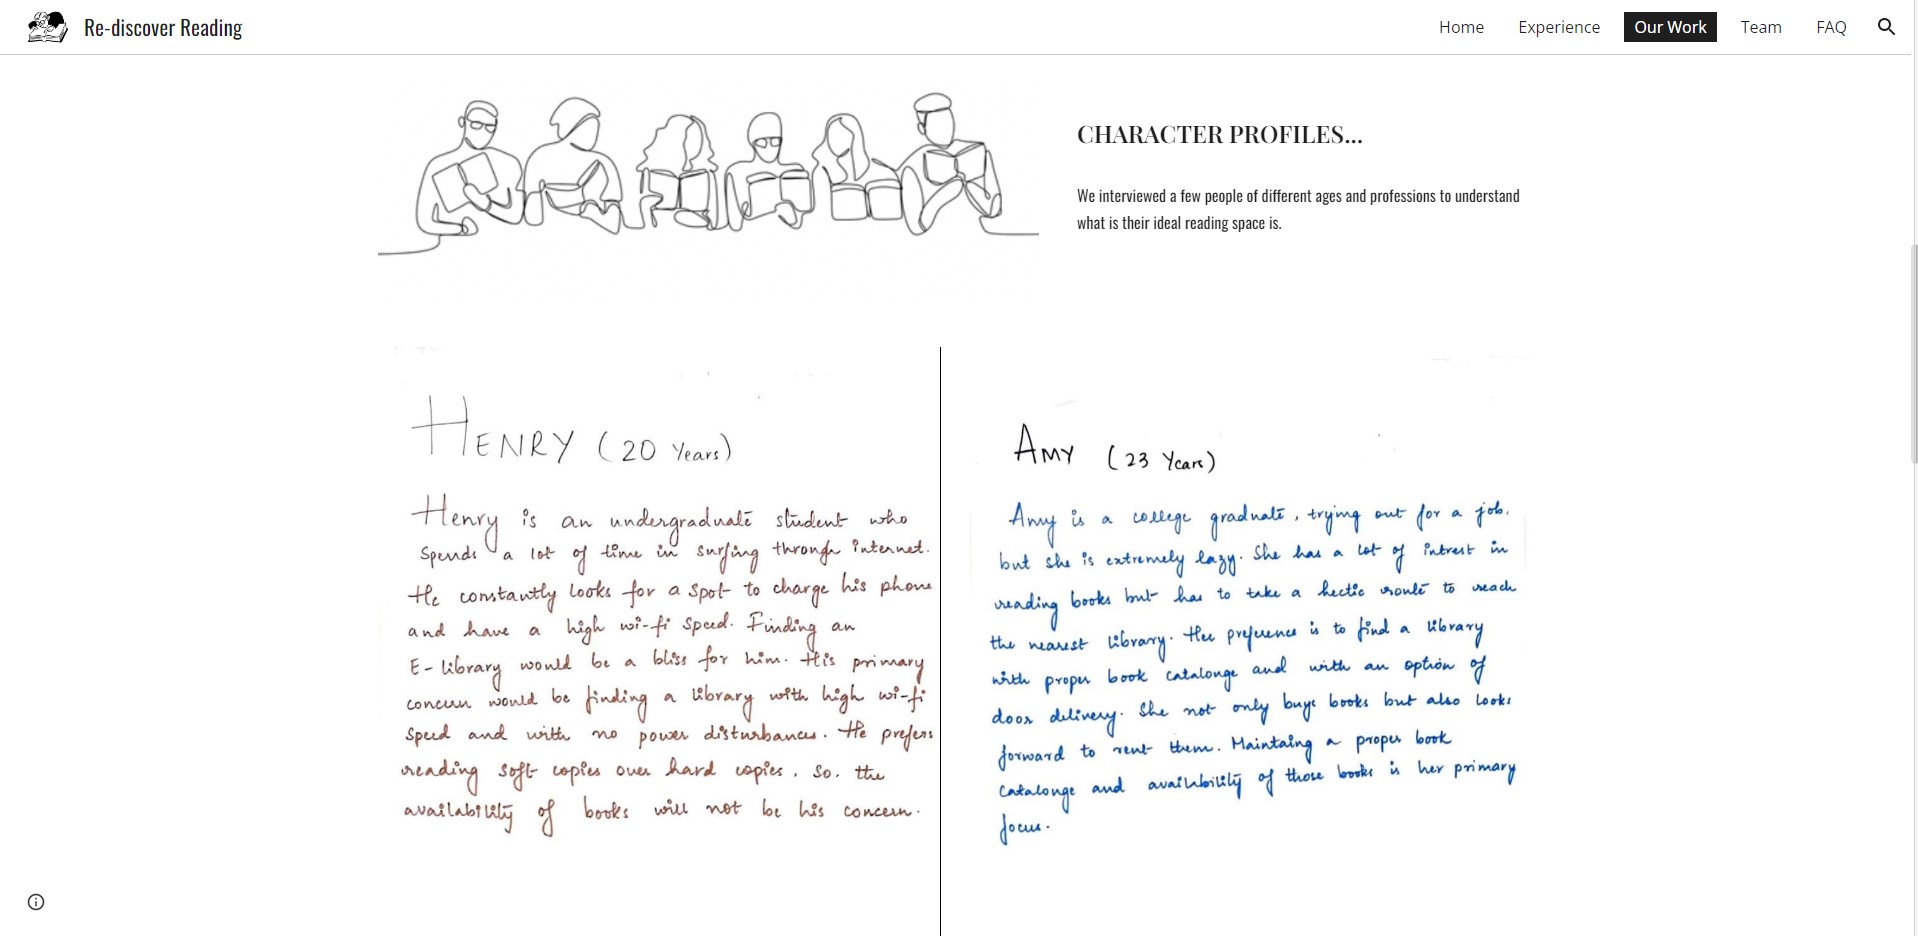 Re-discover Reading
Home Experience Our Work Team FAQ
CHARACTER PROFILES...
We interviewed a few people of different ages and professions to understand
what is their ideal reading space is.
HENRY (20 Years)
Henry is an undergraduate student who
spends a lot of time in surfing through internet.
He constantly looks for a spot to charge his phone
and have a high wi-fi speed. Finding an
E-library would be a bliss for him. His primary
concern would be finding a library with high wi-fi
speed and with no power disturbances. He prefers
reading soft copies over hard copies. So, the
availability of books will not be his concern.
AMY (23 Years)
Amy is a college graduate, trying out for a job.
but she is extremely lazy. She has a lot of intrest in
reading books but has to take a hectic route to reach
the nearest library. Her preference is to find a library
with proper book catalonge and with an option of
door delivery. She not only buys books but also looks
forward to rent them. Maintaing a proper book
catalonge and availability of those books is her primary
focus.